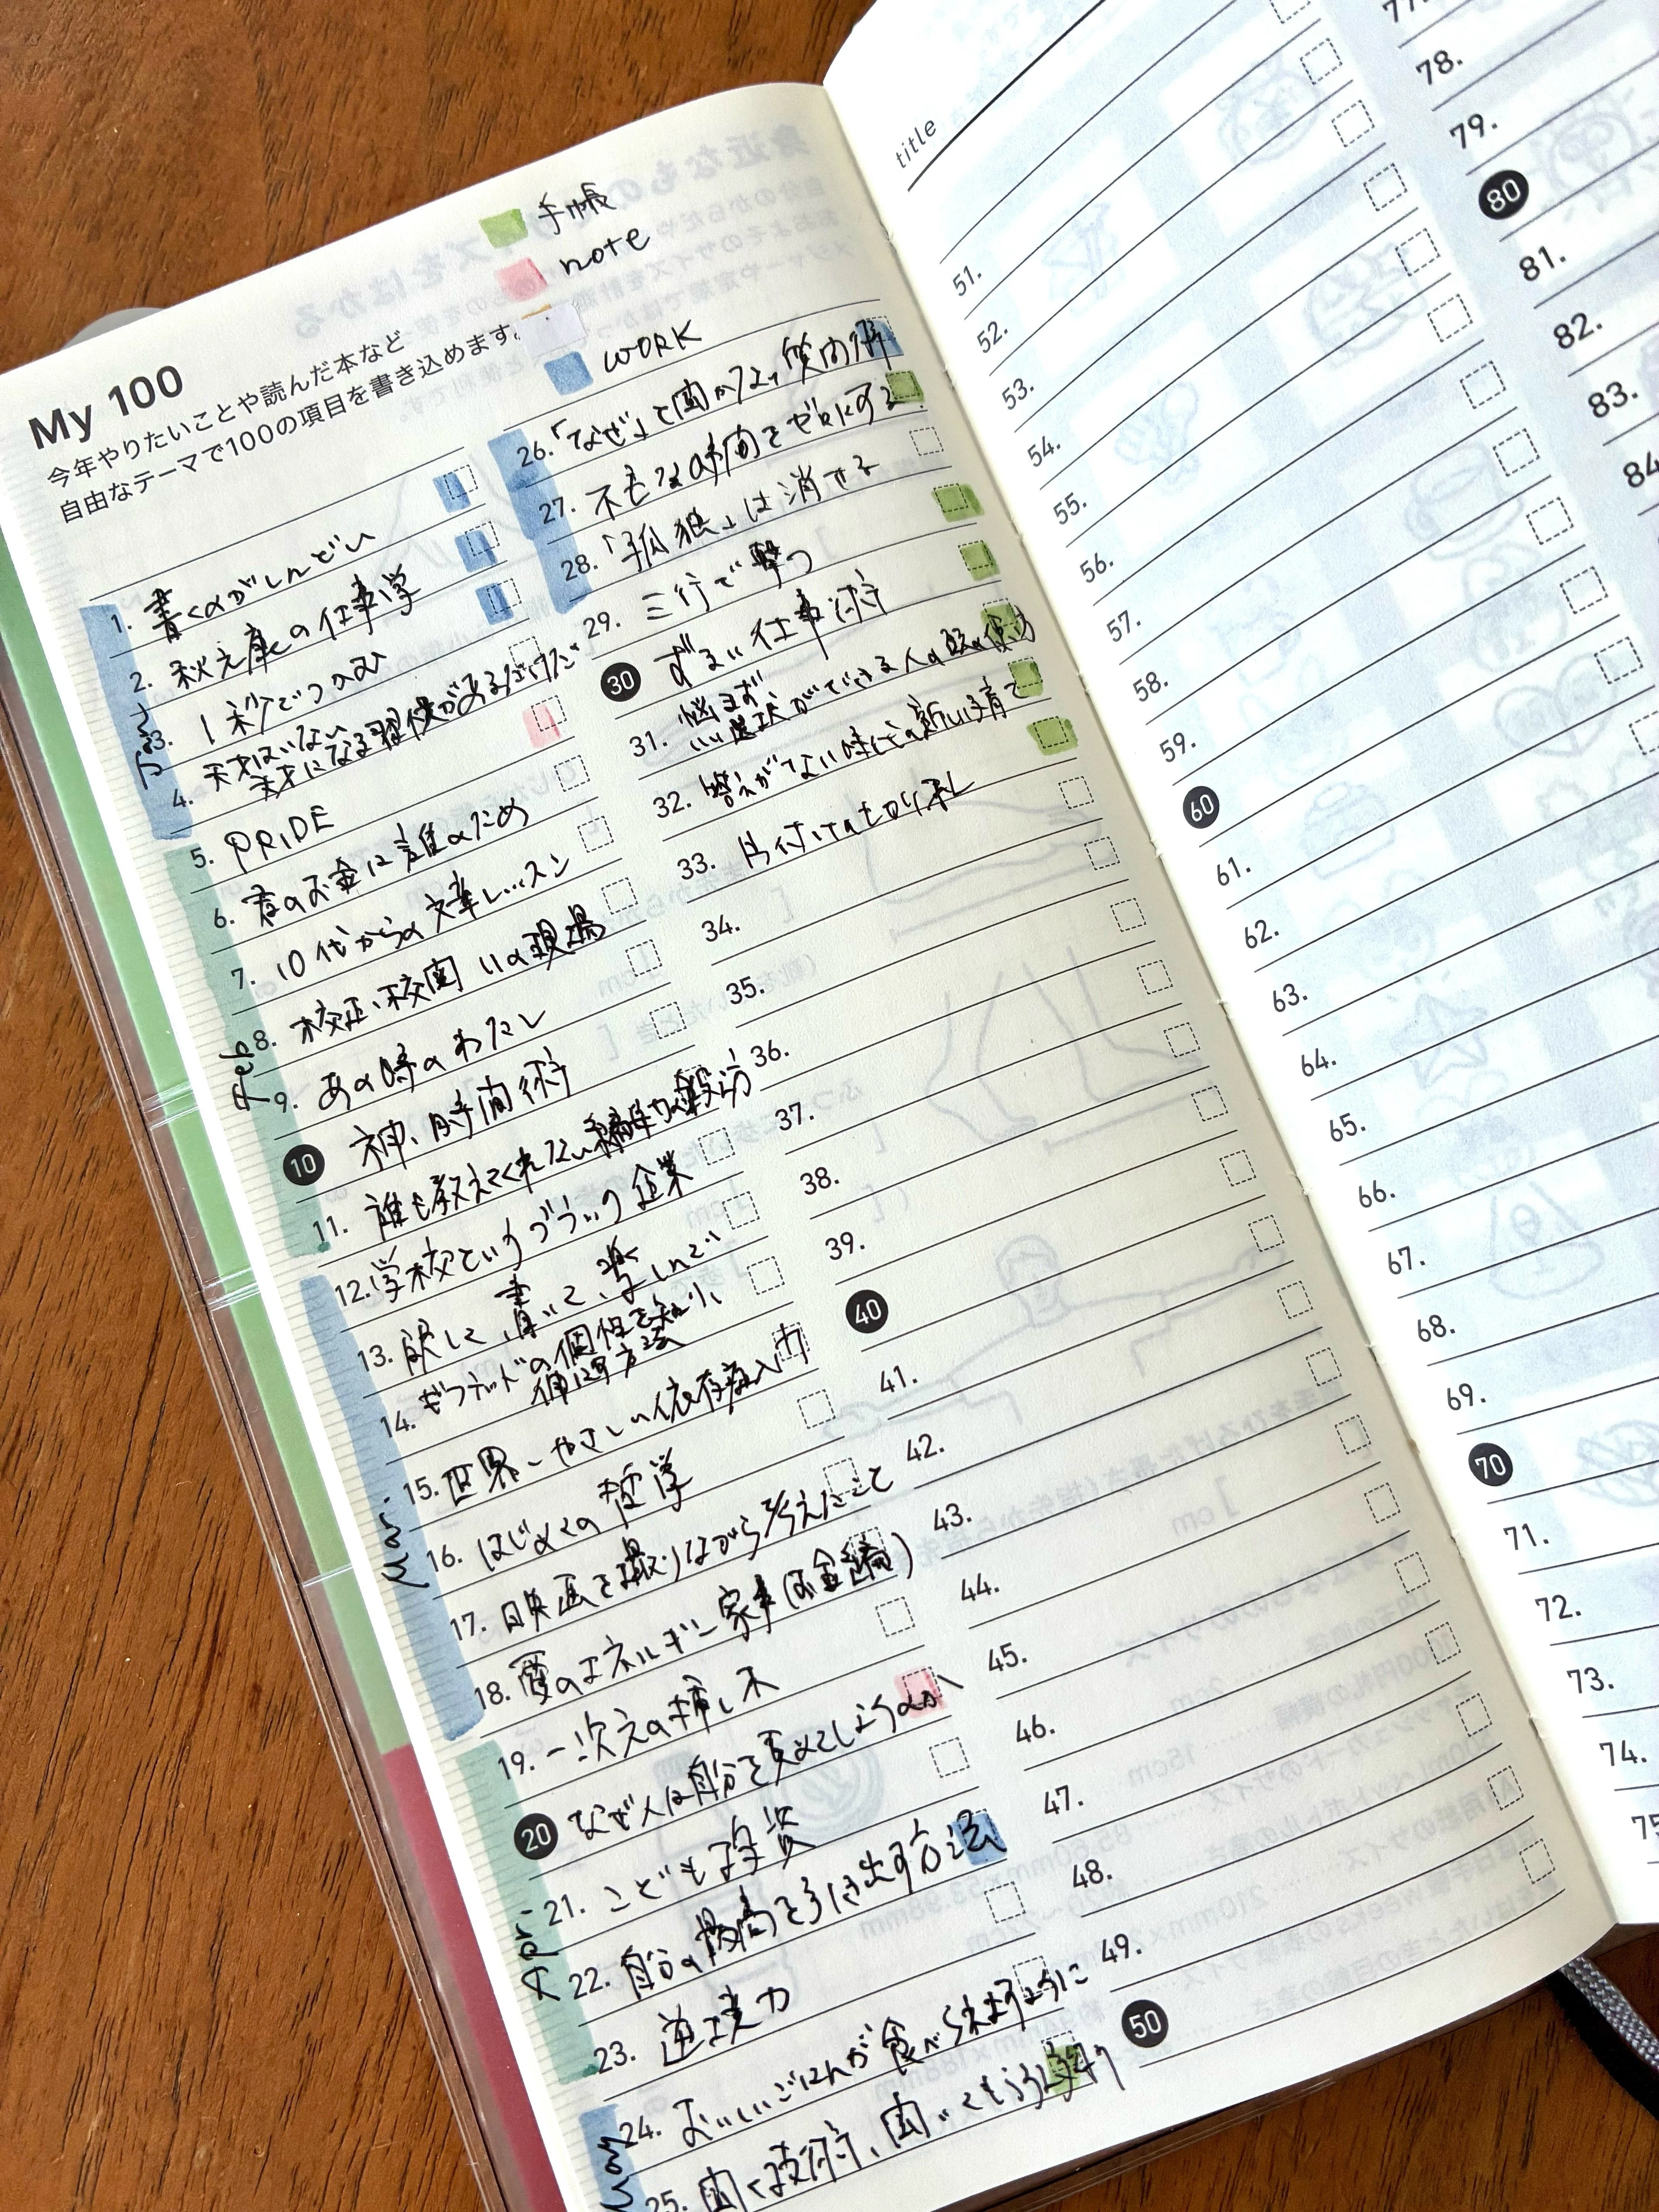 手帳
note
WORK
My 100
今年やりたいことや読んだ本など
自由なテーマで100の項目を書き込めます。
Jan
1. 書くのがしんどい
2. 秋元康の仕事学
3. 1秒でつかむ
4. 天才はいない
天才になる習慣があるだけだ
Feb
5. PRIDE
6. 君のお金は誰のため
7. 10代からの文章レッスン
8. 校正・校閲11の現場
9. あの時のわたし
10 神・時間術
11. 誰も教えてくれない
Mar.
12. 学校というブラック企業
13. 旅して、書いて、楽しんで
14. ギフテッドの個性を知り、
伸ばす方法
15. 世界一やさしい依存症入門
16. はじめての哲学
17. 映画を撮りながら考えたこと
18. 愛のエネルギー家事(お金編)
Apr.
19. 一次元の挿し木
20 なぜ人は自分を責めてしまうのか
21. こども投資
22. 自分の最高を引き出す方法
23. 逆境力
May
24. おいしいごはんが食べられますように
25. 聞く技術、聞いてもらう技術
26. 「なぜ」と聞かない質問術
27. 不毛な時間をゼロにする
28. 「孤独」は消せる
29. 三行で撃つ
30 ずるい仕事術
31. 悩まず
いい選択ができる人の頭の使い方
32. 答えがない時代の新しい子育て
33. 片付けの切り札
34.
35.
36.
37.
38.
39.
40
41.
42.
43.
44.
45.
46.
47.
48.
49.
50
title
51.
52.
53.
54.
55.
56.
57.
58.
59.
60
61.
62.
63.
64.
65.
66.
67.
68.
69.
70
71.
72.
73.
74.
75
77.
78.
79.
80
81.
82.
83.
84